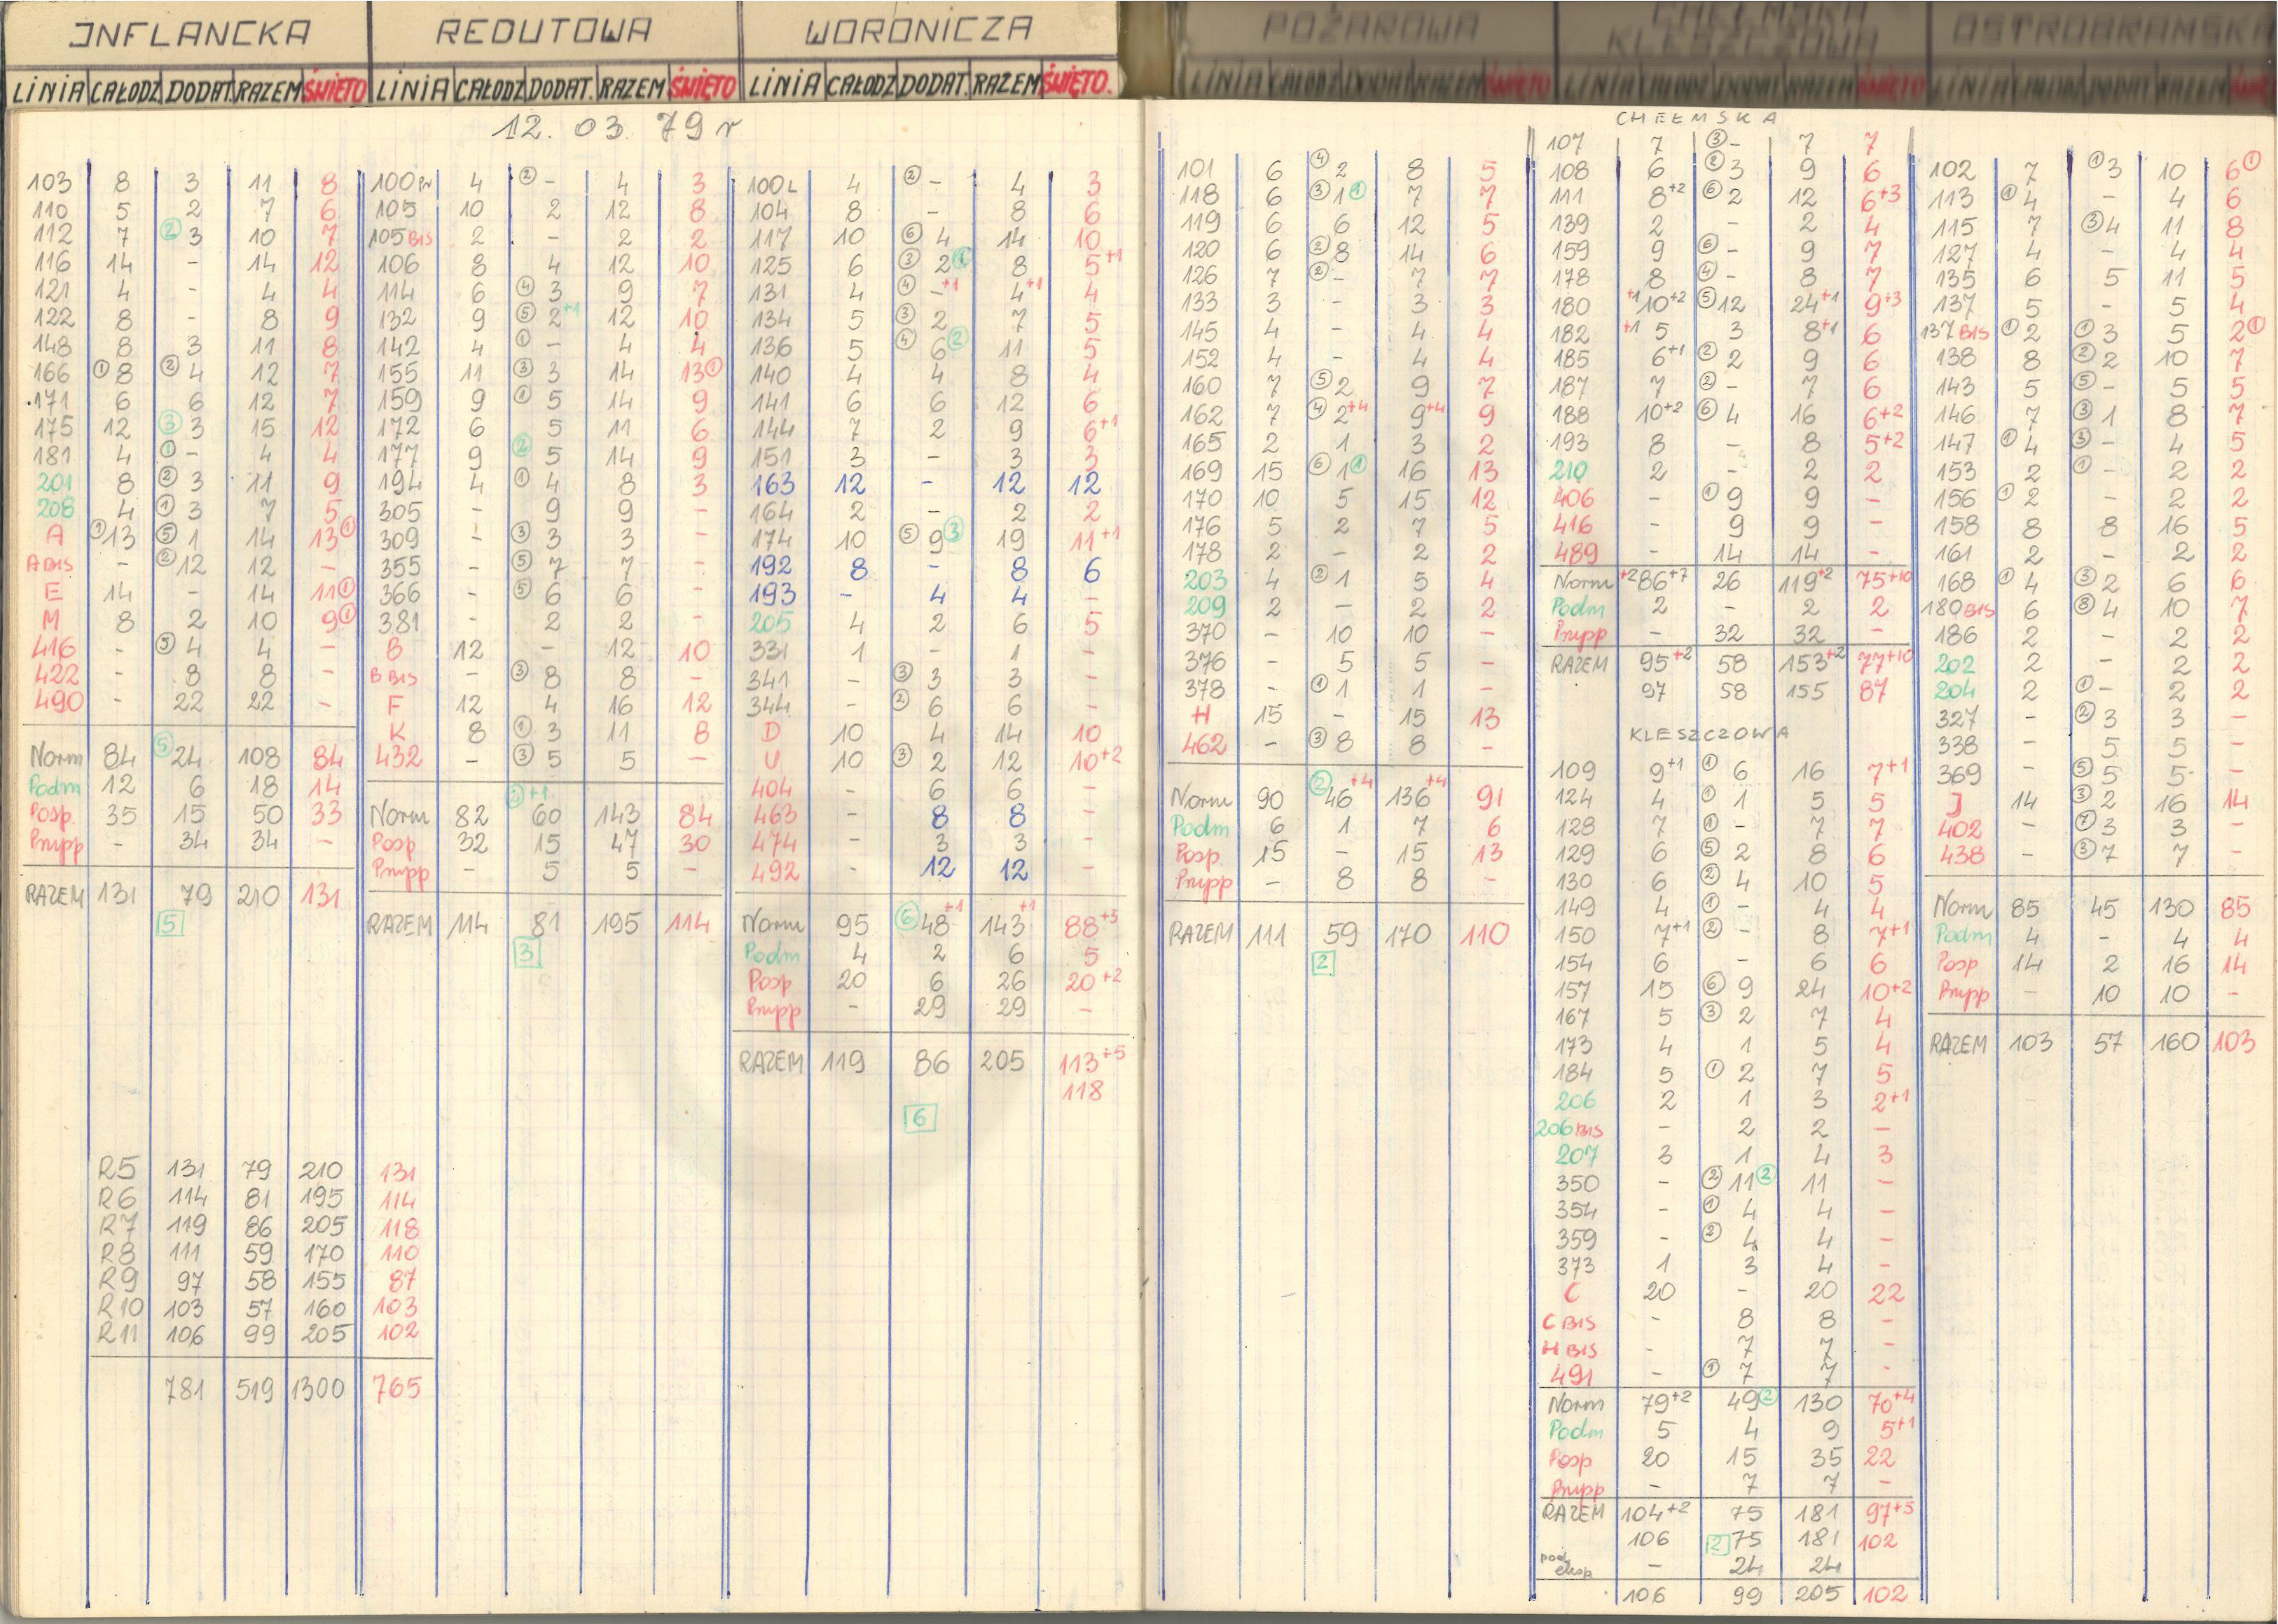 INFLANCKA
LINIA CAŁODZ DODAT. RAZEM ŚWIĘTO
12. 03. 79 r
103 8 3 11 8
110 5 2 7 6
112 7 ② 3 10 7
116 14 - 14 12
121 4 - 4 4
122 8 - 8 9
148 8 3 11 8
166 ① 8 ② 4 12 7
171 6 6 12 7
175 12 ③ 3 15 12
181 4 ① - 4 4
201 8 ② 3 11 9
208 4 ① 3 7 5
A ① 13 ⑤ 1 14 13 ①
A BIS - ② 12 12 -
E 14 - 14 11 ①
M 8 2 10 9 ①
416 - ⑤ 4 4 -
422 - 8 8 -
490 - 22 22 -
Norm 84 ⑤ 24 108 84
Podm 12 6 18 14
Posp. 35 15 50 33
Prupp - 34 34 -
RAZEM 131 79 210 131
5
R5 131 79 210 131
R6 114 81 195 114
R7 119 86 205 118
R8 111 59 170 110
R9 97 58 155 87
R10 103 57 160 103
R11 106 99 205 102
781 519 1300 765
REDUTOWA
LINIA CAŁODZ DODAT. RAZEM ŚWIĘTO
100 Pr 4 ② - 4 3
105 10 2 12 8
105 BIS 2 - 2 2
106 8 4 12 10
114 6 ④ 3 9 7
132 9 ⑤ 2 +1 12 10
142 4 ① - 4 4
155 11 ③ 3 14 13 ①
159 9 ① 5 14 9
172 6 5 11 6
177 9 ② 5 14 9
194 4 ① 4 8 3
305 - 9 9 -
309 - ③ 3 3 -
355 - ⑤ 7 7 -
366 - ⑤ 6 6 -
381 - 2 2 -
B 12 - 12 10
B BIS - ③ 8 8 -
F 12 4 16 12
K 8 ① 3 11 8
432 - ③ 5 5 -
Norm 82 60 +1 143 84
Posp 32 15 47 30
Prupp - 5 5 -
RAZEM 114 81 195 114
3
WORONICZA
LINIA CAŁODZ DODAT. RAZEM ŚWIĘTO.
100L 4 ② - 4 3
104 8 - 8 6
117 10 ⑥ 4 14 10
125 6 ③ 2 ① 8 5 +1
131 4 ④ - +1 4 +1 4
134 5 ③ 2 7 5
136 5 ④ 6 ② 11 5
140 4 4 8 4
141 6 6 12 6
144 7 2 9 6 +1
151 3 - 3 3
163 12 - 12 12
164 2 - 2 2
174 10 ⑤ 9 ③ 19 11 +1
192 8 - 8 6
193 - 4 4 -
205 4 2 6 5
331 1 - 1 -
341 - ③ 3 3 -
344 - ② 6 6 -
D 10 4 14 10
U 10 ③ 2 12 10 +2
404 - 6 6 -
463 - 8 8 -
474 - 3 3 -
492 - 12 12 -
Norm 95 ⑥ 48 +1 143 +1 88 +3
Podm 4 2 6 5
Posp 20 6 26 20 +2
Prupp - 29 29 -
RAZEM 119 86 205 113 +5
118
6
POŻAROWA
LINIA CAŁODZ DODAT RAZEM ŚWIĘTO
101 6 ④ 2 8 5
118 6 ③ 1 ① 7 7
119 6 6 12 5
120 6 ② 8 14 6
126 7 ② - 7 7
133 3 - 3 3
145 4 - 4 4
152 4 - 4 4
160 7 ⑤ 2 9 7
162 7 ④ 2 +4 9 +4 9
165 2 1 3 2
169 15 ⑥ 1 ① 16 13
170 10 5 15 12
176 5 2 7 5
178 2 - 2 2
203 4 ② 1 5 4
209 2 - 2 2
370 - 10 10 -
376 - 5 5 -
378 - ① 1 1 -
H 15 - 15 13
462 - ③ 8 8 -
Norm 90 ② 46 +4 136 +4 91
Podm 6 1 7 6
Posp. 15 - 15 13
Prupp - 8 8 -
RAZEM 111 59 170 110
2
CHEŁMSKA
KLESZCZOWA
LINIA CAŁODZ DODAT RAZEM ŚWIĘTO
CHEŁMSKA
107 7 ③ - 7 7
108 6 ② 3 9 6
111 8 +2 ⑥ 2 12 6 +3
139 2 - 2 4
159 9 ⑥ - 9 7
178 8 ④ - 8 7
180 +1 10 +2 ⑤ 12 24 +1 9 +3
182 +1 5 3 8 +1 6
185 6 +1 ② 2 9 6
187 7 ② - 7 6
188 10 +2 ⑥ 4 16 6 +2
193 8 - 8 5 +2
210 2 - 2 2
406 - ① 9 9 -
416 - 9 9 -
489 - 14 14 -
Norm +2 86 +7 26 119 +2 75 +10
Podm 2 - 2 2
Prupp - 32 32 -
RAZEM 95 +2 58 153 +2 77 +10
97 58 155 87
KLESZCZOWA
109 9 +1 ① 6 16 7 +1
124 4 ① 1 5 5
128 7 ① - 7 7
129 6 ⑤ 2 8 6
130 6 ② 4 10 5
149 4 ① - 4 4
150 7 +1 ② - 8 7 +1
154 6 - 6 6
157 15 ⑥ 9 24 10 +2
167 5 ③ 2 7 4
173 4 1 5 4
184 5 ① 2 7 5
206 2 1 3 2 +1
206 BIS - 2 2 -
207 3 1 4 3
350 - ② 11 ② 11 -
354 - ① 4 4 -
359 - ② 4 4 -
373 1 3 4 -
C 20 - 20 22
C BIS - 8 8 -
H BIS - 7 7 -
491 - ① 7 7 -
Norm 79 +2 49 ② 130 70 +4
Podm 5 4 9 5 +1
Posp 20 15 35 22
Prupp - 7 7 -
RAZEM 104 +2 75 181 97 +5
106 2 75 181 102
- 24 24
106 99 205 102
OSTROBRAMSKA
LINIA CAŁODZ DODAT RAZEM
102 7 ① 3 10 6 ①
113 ① 4 - 4 6
115 7 ③ 4 11 8
127 4 - 4 4
135 6 5 11 5
137 5 - 5 4
137 BIS ① 2 ① 3 5 2 ①
138 8 ② 2 10 7
143 5 ⑤ - 5 5
146 7 ③ 1 8 7
147 ① 4 ③ - 4 5
153 2 ① - 2 2
156 ① 2 - 2 2
158 8 8 16 5
161 2 - 2 2
168 ① 4 ③ 2 6 6
180 BIS 6 ⑧ 4 10 7
186 2 - 2 2
202 2 - 2 2
204 2 ① - 2 2
327 - ② 3 3 -
338 - 5 5 -
369 - ⑤ 5 5 -
J 14 ③ 2 16 14
402 - ⑦ 3 3 -
438 - ③ 7 7 -
Norm 85 45 130 85
Podm 4 - 4 4
Posp 14 2 16 14
Prupp - 10 10 -
RAZEM 103 57 160 103